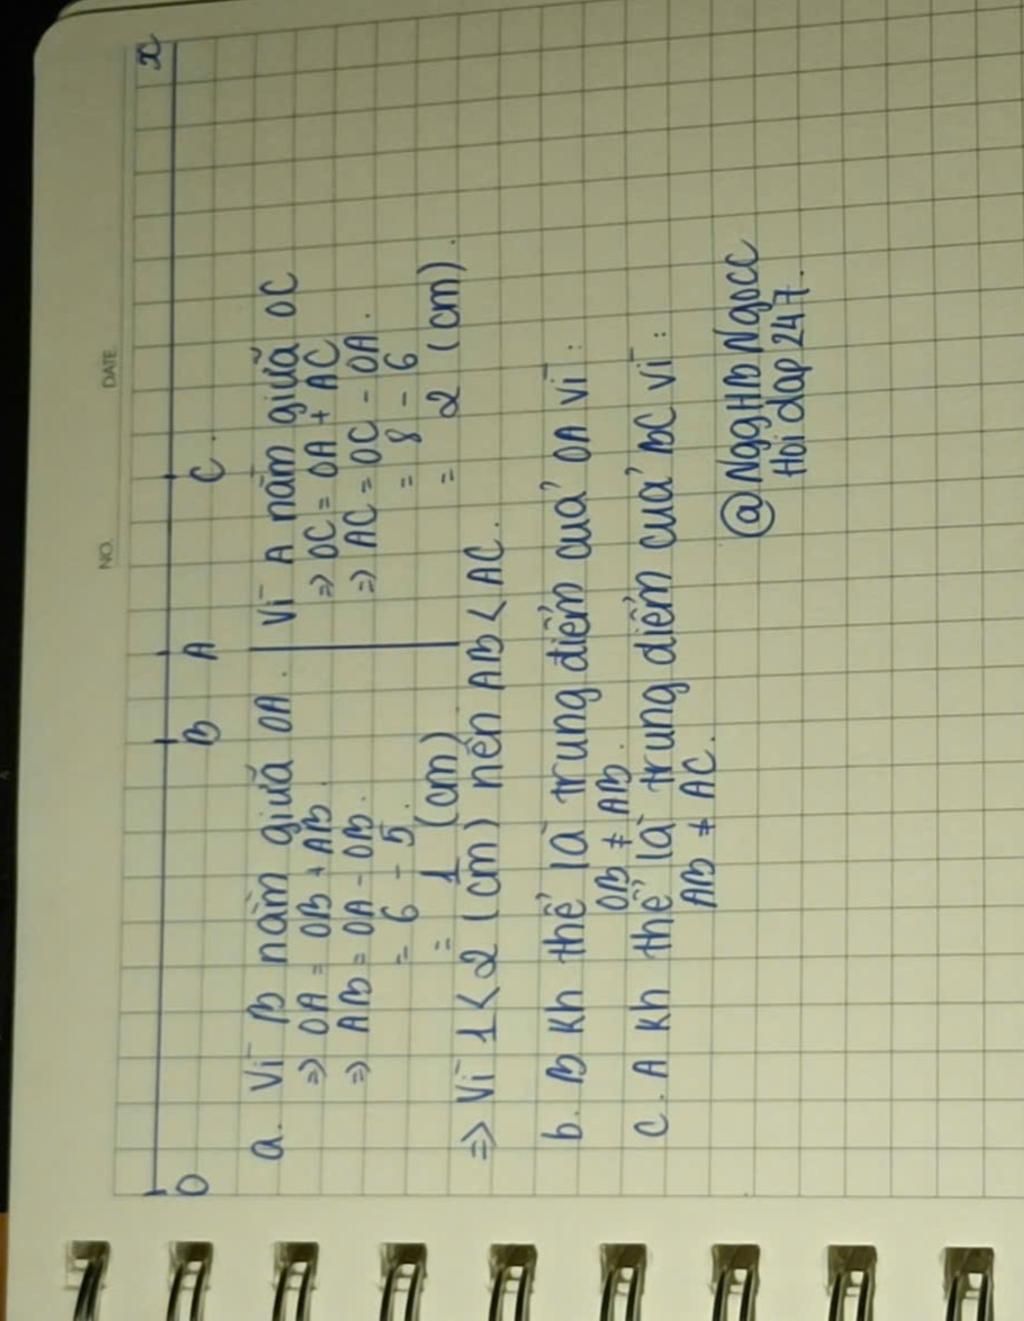 NO. DATE
x
O B A C.
a. Vì B nằm giữa OA.
=) OA = OB + AB.
=) AB = OA - OB.
= 6 - 5.
= 1 (cm)
Vì A nằm giữa OC
=) OC = OA + AC
=) AC = OC - OA.
= 8 - 6
= 2 (cm).
=) Vì 1 < 2 (cm) nên AB < AC.
b. B kh thể là trung điểm của OA vì:
OB ≠ AB.
c. A kh thể là trung điểm của BC vì:
AB ≠ AC.
@NggHBNgocc
Hoidap247.